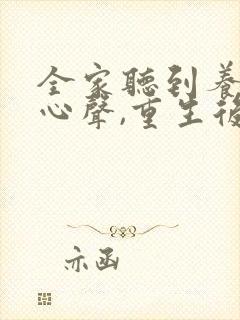 全家聽到養
心聲,重生後
亦函